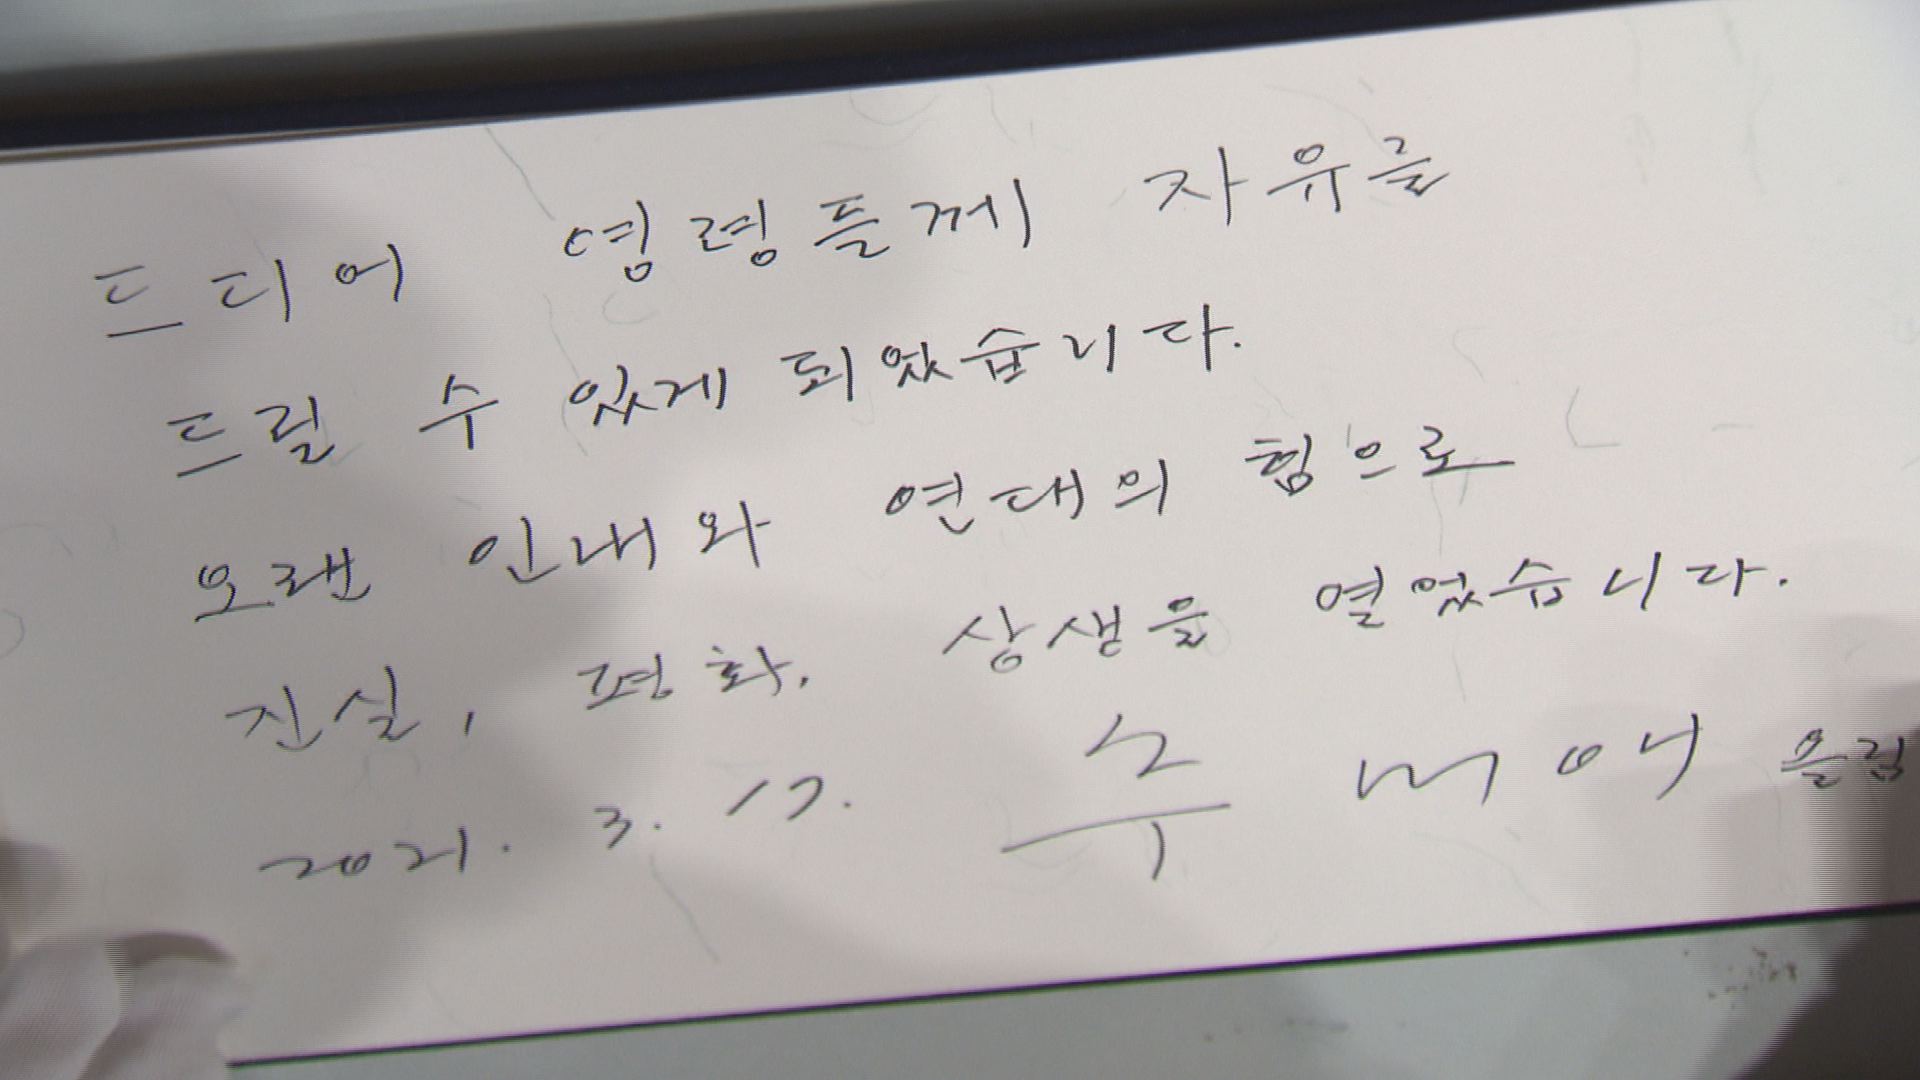 드디어 영령들께 자유를
드릴 수 있게 되었습니다.
오랜 인내와 연대의 힘으로
진실, 평화, 상생을 열었습니다.
2021. 3. 17. 추미애 올림